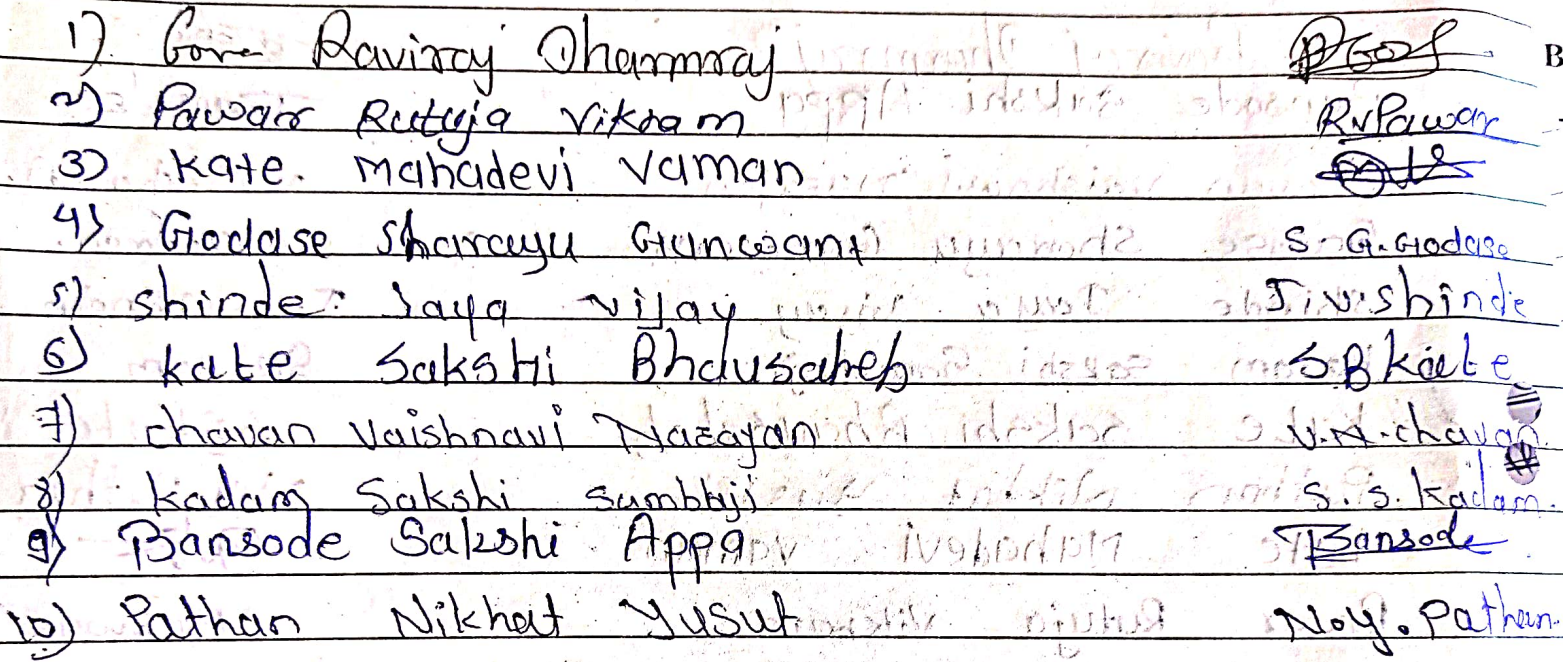 1) Gore Raviraj Dharmraj
2) Pawar Rutuja Vikram R.V.Pawar
3) Kate. Mahadevi Vaman
4) Godase Sharayu Gunwant S. G. Godase
5) Shinde. Jaya Vijay J.V.Shinde
6) Kate Sakshi Bhausaheb S.B Kate
7) chavan Vaishnavi Narayan V.N.chavan.
8) kadam Sakshi sambhji S.S. Kadam.
9) Bansode Sakshi Appa Bansode
10) Pathan Nikhat Yusuf N.Y. Pathan.